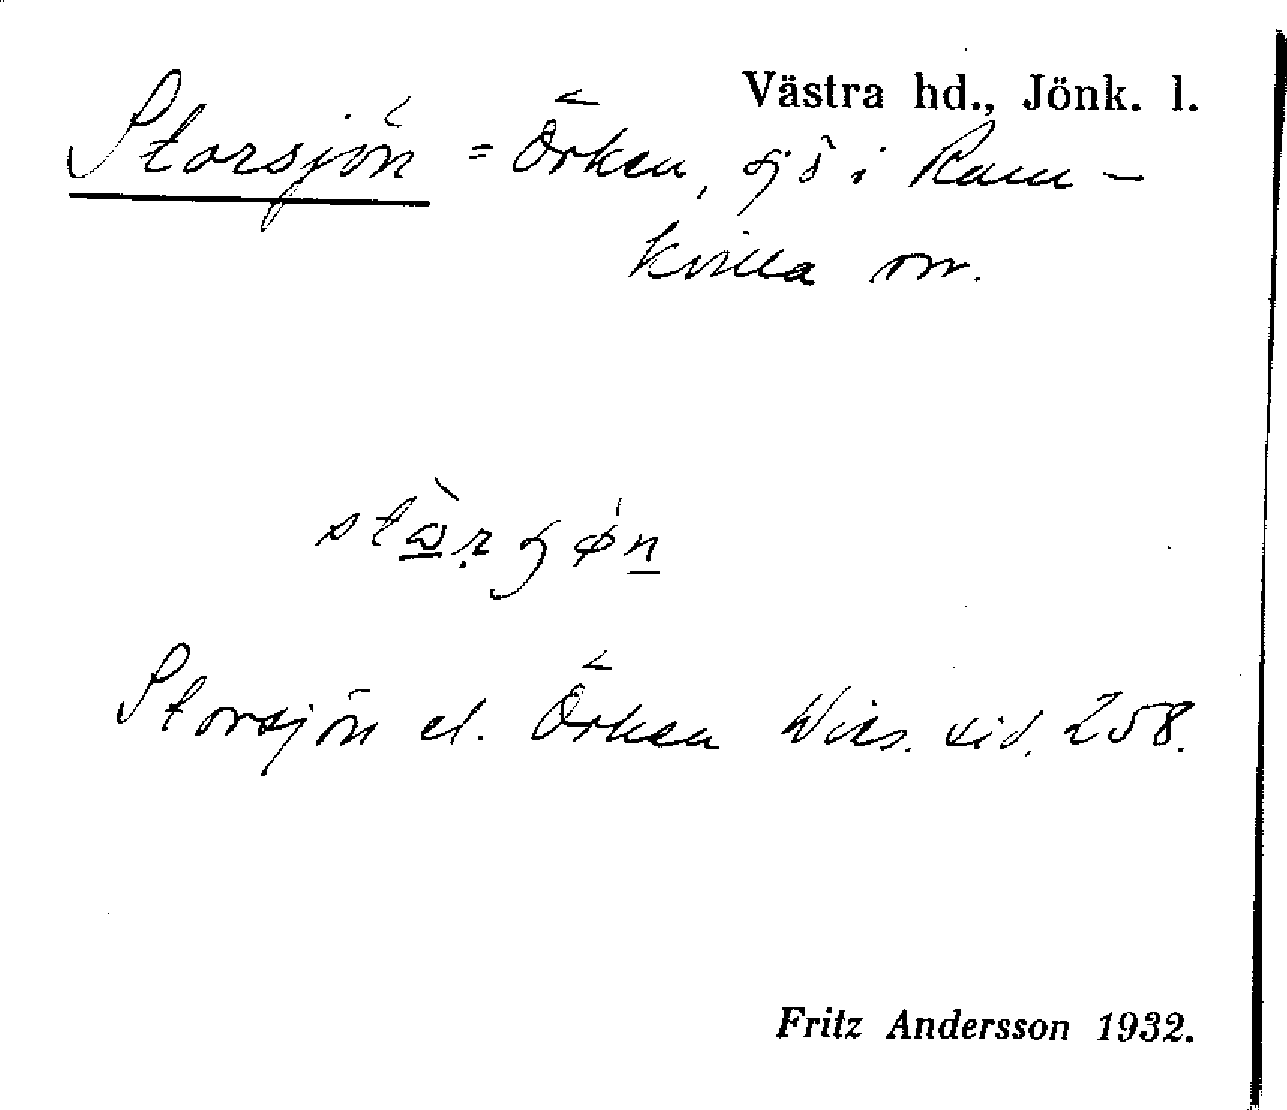 Västra hd., Jönk. l.
Storsjön = Örken, sjö i Ram-
kvilla sn.
Storsjön el. Örken Wies. sid. 258.
Fritz Andersson 1932.